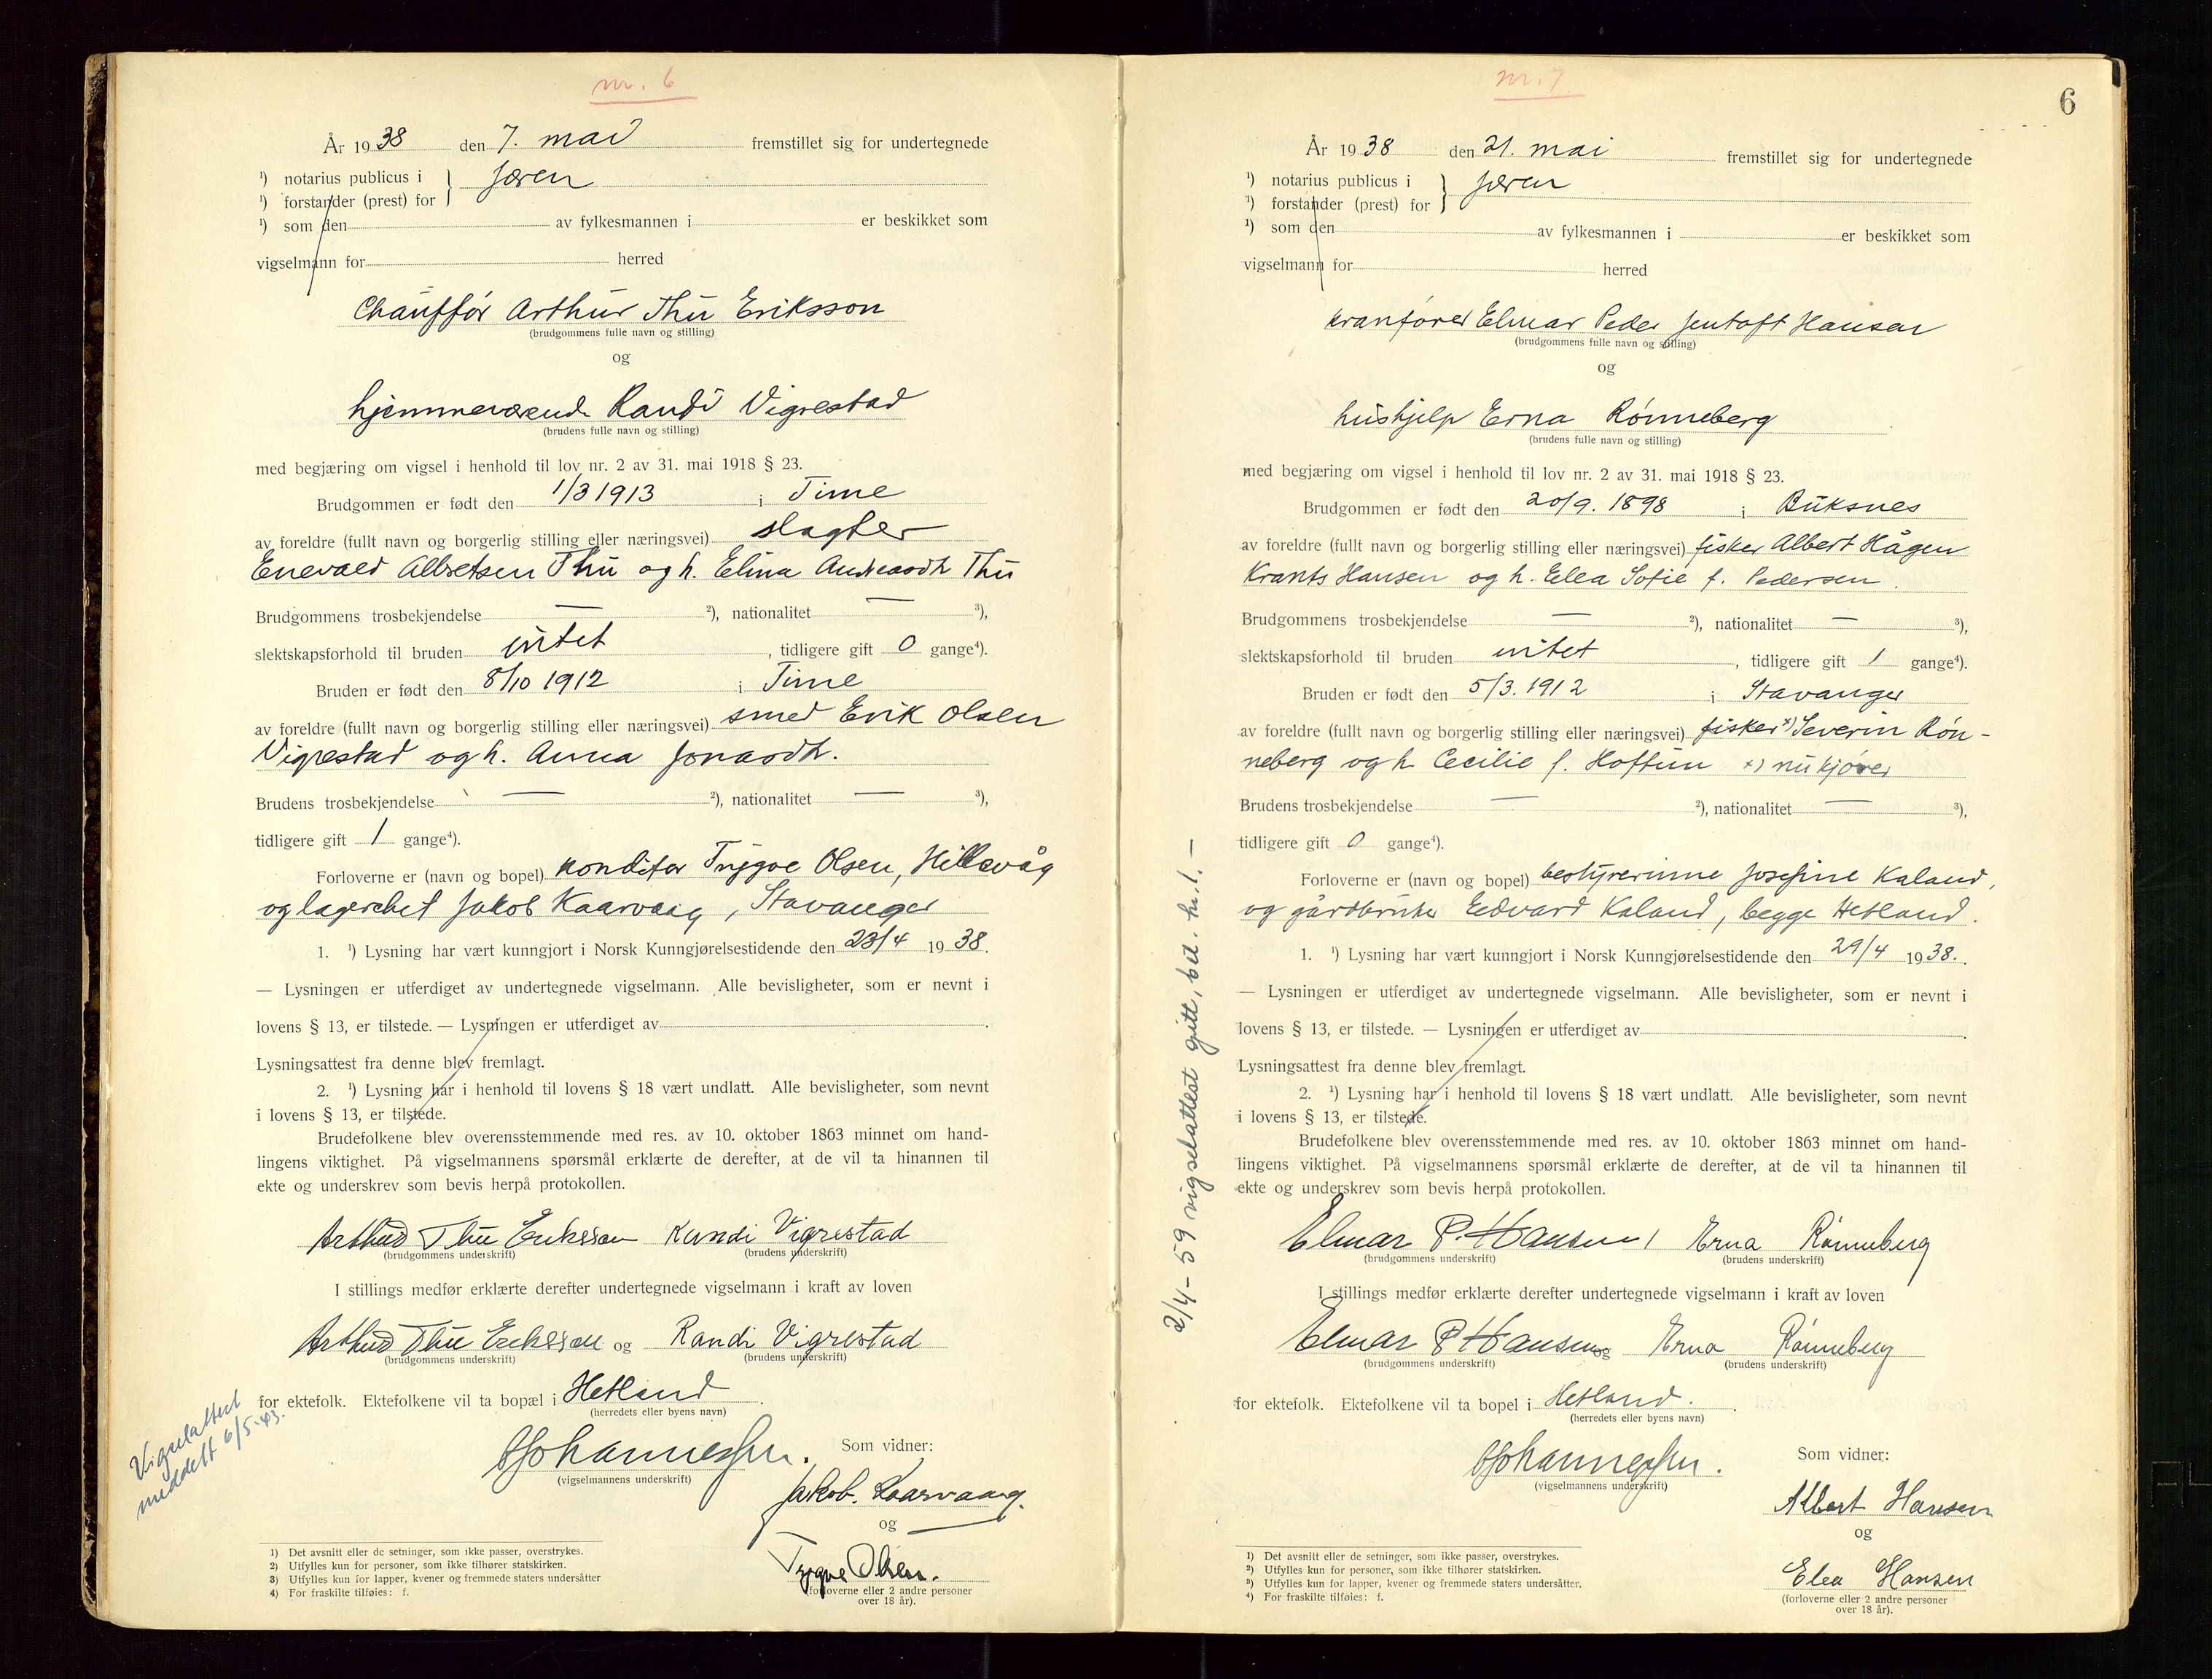 nr. 6
År 1938 den 7. mai fremstillet sig for undertegnede
¹) notarius publicus i } Jæren
¹) forstander (prest) for
¹) som den av fylkesmannen i er beskikket som
vigselmann for herred
Chauffør Arthur Thu Eriksson
(brudgommens fulle navn og stilling)
og
hjemmeværende Randi Vigrestad
(brudens fulle navn og stilling)
med begjæring om vigsel i henhold til lov nr. 2 av 31. mai 1918 § 23.
Brudgommen er født den 1/3 1913 i Time
av foreldre (fullt navn og borgerlig stilling eller næringsvei) slagter
Enevald Albretsen Thu og h. Elina Andreasdtr Thu
Brudgommens trosbekjendelse — ²), nationalitet — ³),
slektskapsforhold til bruden intet, tidligere gift 0 gange⁴).
Bruden er født den 8/10 1912 i Time
av foreldre (fullt navn og borgerlig stilling eller næringsvei) smed Erik Olsen
Vigrestad og h. Anna Jonasdtr.
Brudens trosbekjendelse — ²), nationalitet — ³),
tidligere gift 1 gange⁴).
Forloverne er (navn og bopel) konditor Trygve Olsen, Hillevåg
og lagerchef Jakob Kaarvaag, Stavanger
1. ¹) Lysning har vært kunngjort i Norsk Kunngjørelsestidende den 23/4 1938.
— Lysningen er utferdiget av undertegnede vigselmann. Alle bevisligheter, som er nevnt i
lovens § 13, er tilstede. — Lysningen er utferdiget av .
Lysningsattest fra denne blev fremlagt.
2. ¹) Lysning har i henhold til lovens § 18 vært undlatt. Alle bevisligheter, som nevnt
i lovens § 13, er tilstede.
Brudefolkene blev overensstemmende med res. av 10. oktober 1863 minnet om hand-
lingens viktighet. På vigselmannens spørsmål erklærte de derefter, at de vil ta hinannen til
ekte og underskrev som bevis herpå protokollen.
Arthur Thu Eriksson Randi Vigrestad
(brudgommens underskrift) (brudens underskrift)
I stillings medfør erklærte derefter undertegnede vigselmann i kraft av loven
Arthur Thu Eriksson og Randi Vigrestad
(brudgommens underskrift) (brudens underskrift)
for ektefolk. Ektefolkene vil ta bopæl i Hetland.
(herredets eller byens navn)
Vigselattest
meddelt 6/5-43.
Johannessen.
(vigselmannens underskrift)
Som vidner:
Jakob. Kaarvaag.
og
Trygve Olsen.
(forloverne eller 2 andre personer
over 18 år).
1) Det avsnitt eller de setninger, som ikke passer, overstrykes.
2) Utfylles kun for personer, som ikke tilhører statskirken.
3) Utfylles kun for lapper, kvener og fremmede staters undersåtter
4) For fraskilte tilføies: f.
nr. 7
6
År 1938 den 21. mai fremstillet sig for undertegnede
¹) notarius publicus i } Jæren
¹) forstander (prest) for
¹) som den av fylkesmannen i er beskikket som
vigselmann for herred
kranfører Elmar Peder Jentoft Hansen
(brudgommens fulle navn og stilling)
og
hushjelp Erna Rønneberg
(brudens fulle navn og stilling)
med begjæring om vigsel i henhold til lov nr. 2 av 31. mai 1918 § 23.
Brudgommen er født den 20/9. 1898 i Buksnes
av foreldre (fullt navn og borgerlig stilling eller næringsvei) fisker Albert Hågen
Krants Hansen og h. Elea Sofie f. Pedersen.
Brudgommens trosbekjendelse — ²), nationalitet — ³),
slektskapsforhold til bruden intet, tidligere gift 1 gange⁴).
Bruden er født den 5/3. 1912 i Stavanger
av foreldre (fullt navn og borgerlig stilling eller næringsvei) fisker x) Severin Røn-
neberg og h. Cecilie f. Hoftun x) nu kjører
Brudens trosbekjendelse — ²), nationalitet — ³),
tidligere gift 0 gange⁴).
Forloverne er (navn og bopel) bestyrerinne Josefine Kaland,
og gårdbruker Edvard Kaland, begge Hetland.
1. ¹) Lysning har vært kunngjort i Norsk Kunngjørelsestidende den 29/4 1938.
— Lysningen er utferdiget av undertegnede vigselmann. Alle bevisligheter, som er nevnt i
lovens § 13, er tilstede. — Lysningen er utferdiget av .
Lysningsattest fra denne blev fremlagt.
2. ¹) Lysning har i henhold til lovens § 18 vært undlatt. Alle bevisligheter, som nevnt
i lovens § 13, er tilstede.
Brudefolkene blev overensstemmende med res. av 10. oktober 1863 minnet om hand-
lingens viktighet. På vigselmannens spørsmål erklærte de derefter, at de vil ta hinannen til
ekte og underskrev som bevis herpå protokollen.
Elmar P. Hansen Erna Rønneberg
(brudgommens underskrift) (brudens underskrift)
I stillings medfør erklærte derefter undertegnede vigselmann i kraft av loven
Elmar P Hansen og Erna Rønneberg
(brudgommens underskrift) (brudens underskrift)
for ektefolk. Ektefolkene vil ta bopel i Hetland.
(herredets eller byens navn)
2/4-59 vigselattest gitt, bet. kr. 1.—
Johannessen.
(vigselmannens underskrift)
Som vidner:
Albert Hansen
og
Elea Hansen
(forloverne eller 2 andre personer
over 18 år).
1) Det avsnitt eller de setninger, som ikke passer, overstrykes.
2) Utfylles kun for personer, som ikke tilhører statskirken.
3) Utfylles kun for lapper, kvener og fremmede staters undersåtter.
4) For fraskilte tilføies: f.